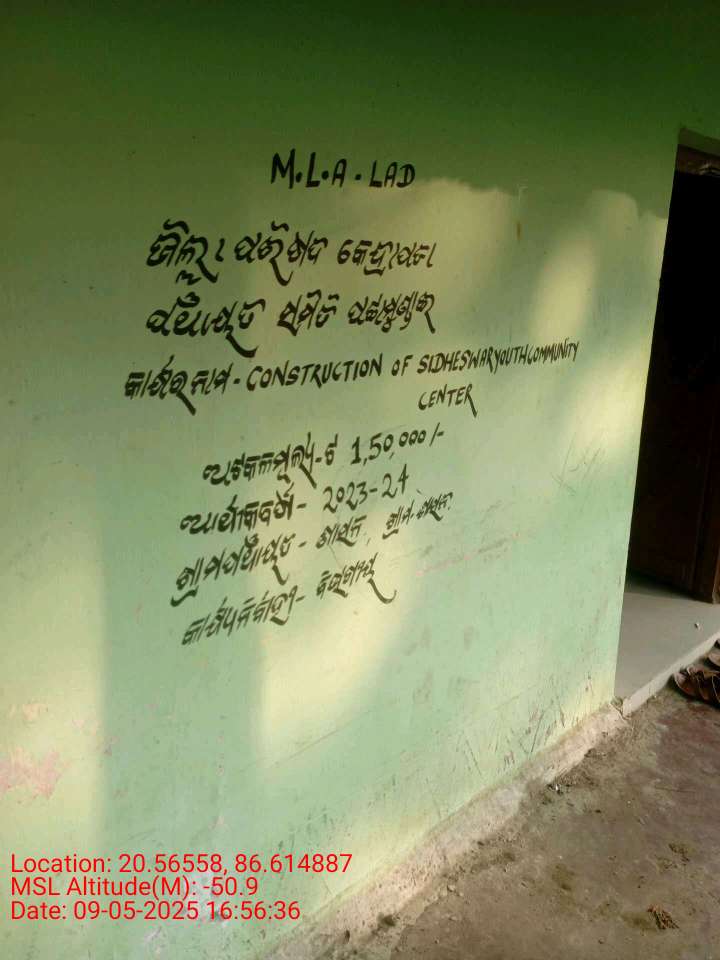 M.L.A. LAD
ଜିଲ୍ଲା ପରିଷଦ କେନ୍ଦ୍ରାପଡା
ପଂଚାୟତ ସମିତି ପଟ୍ଟାମୁଣ୍ଡାଇ
କାର୍ଯ୍ୟର ନାମ - CONSTRUCTION OF SIDHESWAR YOUTH COMMUNITY
CENTER
ଅଟକଳ ମୂଲ୍ୟ - ଟ 1,50,000/-
ଆର୍ଥିକ ବର୍ଷ - 2023-24
ଗ୍ରାମପଂଚାୟତ - ଶାସନ, ଗ୍ରାମ - ଶାସନ
କାର୍ଯ୍ୟନିର୍ବାହୀ -
Location: 20.56558, 86.614887
MSL Altitude(M): -50.9
Date: 09-05-2025 16:56:36